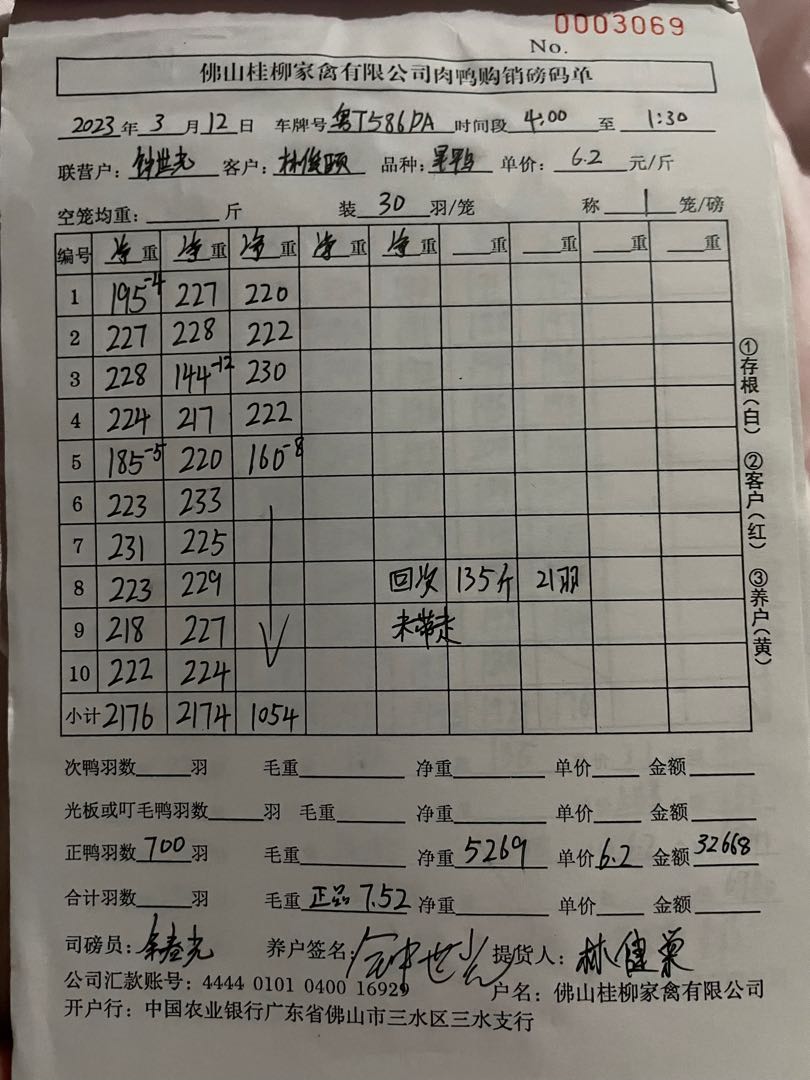 No. 0003069
佛山桂柳家禽有限公司肉鸭购销磅码单
2023年3月12日 车牌号粤T586DA 时间段4:00至1:30
联营户:钟世光 客户:林俊颐 品种: 单价:6.2元/斤
空笼均重:斤 装30羽/笼 称1笼/磅
编号 净重 净重 净重 净重 净重 重 重 重 重
1 195-4 227 220
2 227 228 222
3 228 144-12 230
4 224 217 222
5 185-5 220 160-8
6 223 233
7 231 225
8 223 229 回次 135斤 21羽
9 218 227 未带走
10 222 224
小计 2176 2174 1054
次鸭羽数羽 毛重 净重 单价 金额
光板或叮毛鸭羽数羽 毛重 净重 单价 金额
正鸭羽数700羽 毛重 净重5269 单价6.2 金额32668
合计羽数羽 毛重正品7.52 净重 单价 金额
司磅员: 养户签名:钟世光 提货人:
公司汇款账号:4444 0101 0400 16929 户名:佛山桂柳家禽有限公司
开户行:中国农业银行广东省佛山市三水区三水支行
①存根(白) ②客户(红) ③养户(黄)